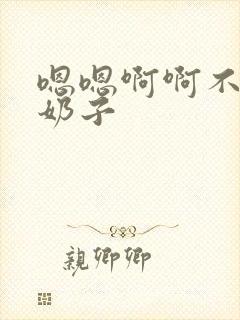 嗯嗯啊啊不
奶子
親卿卿